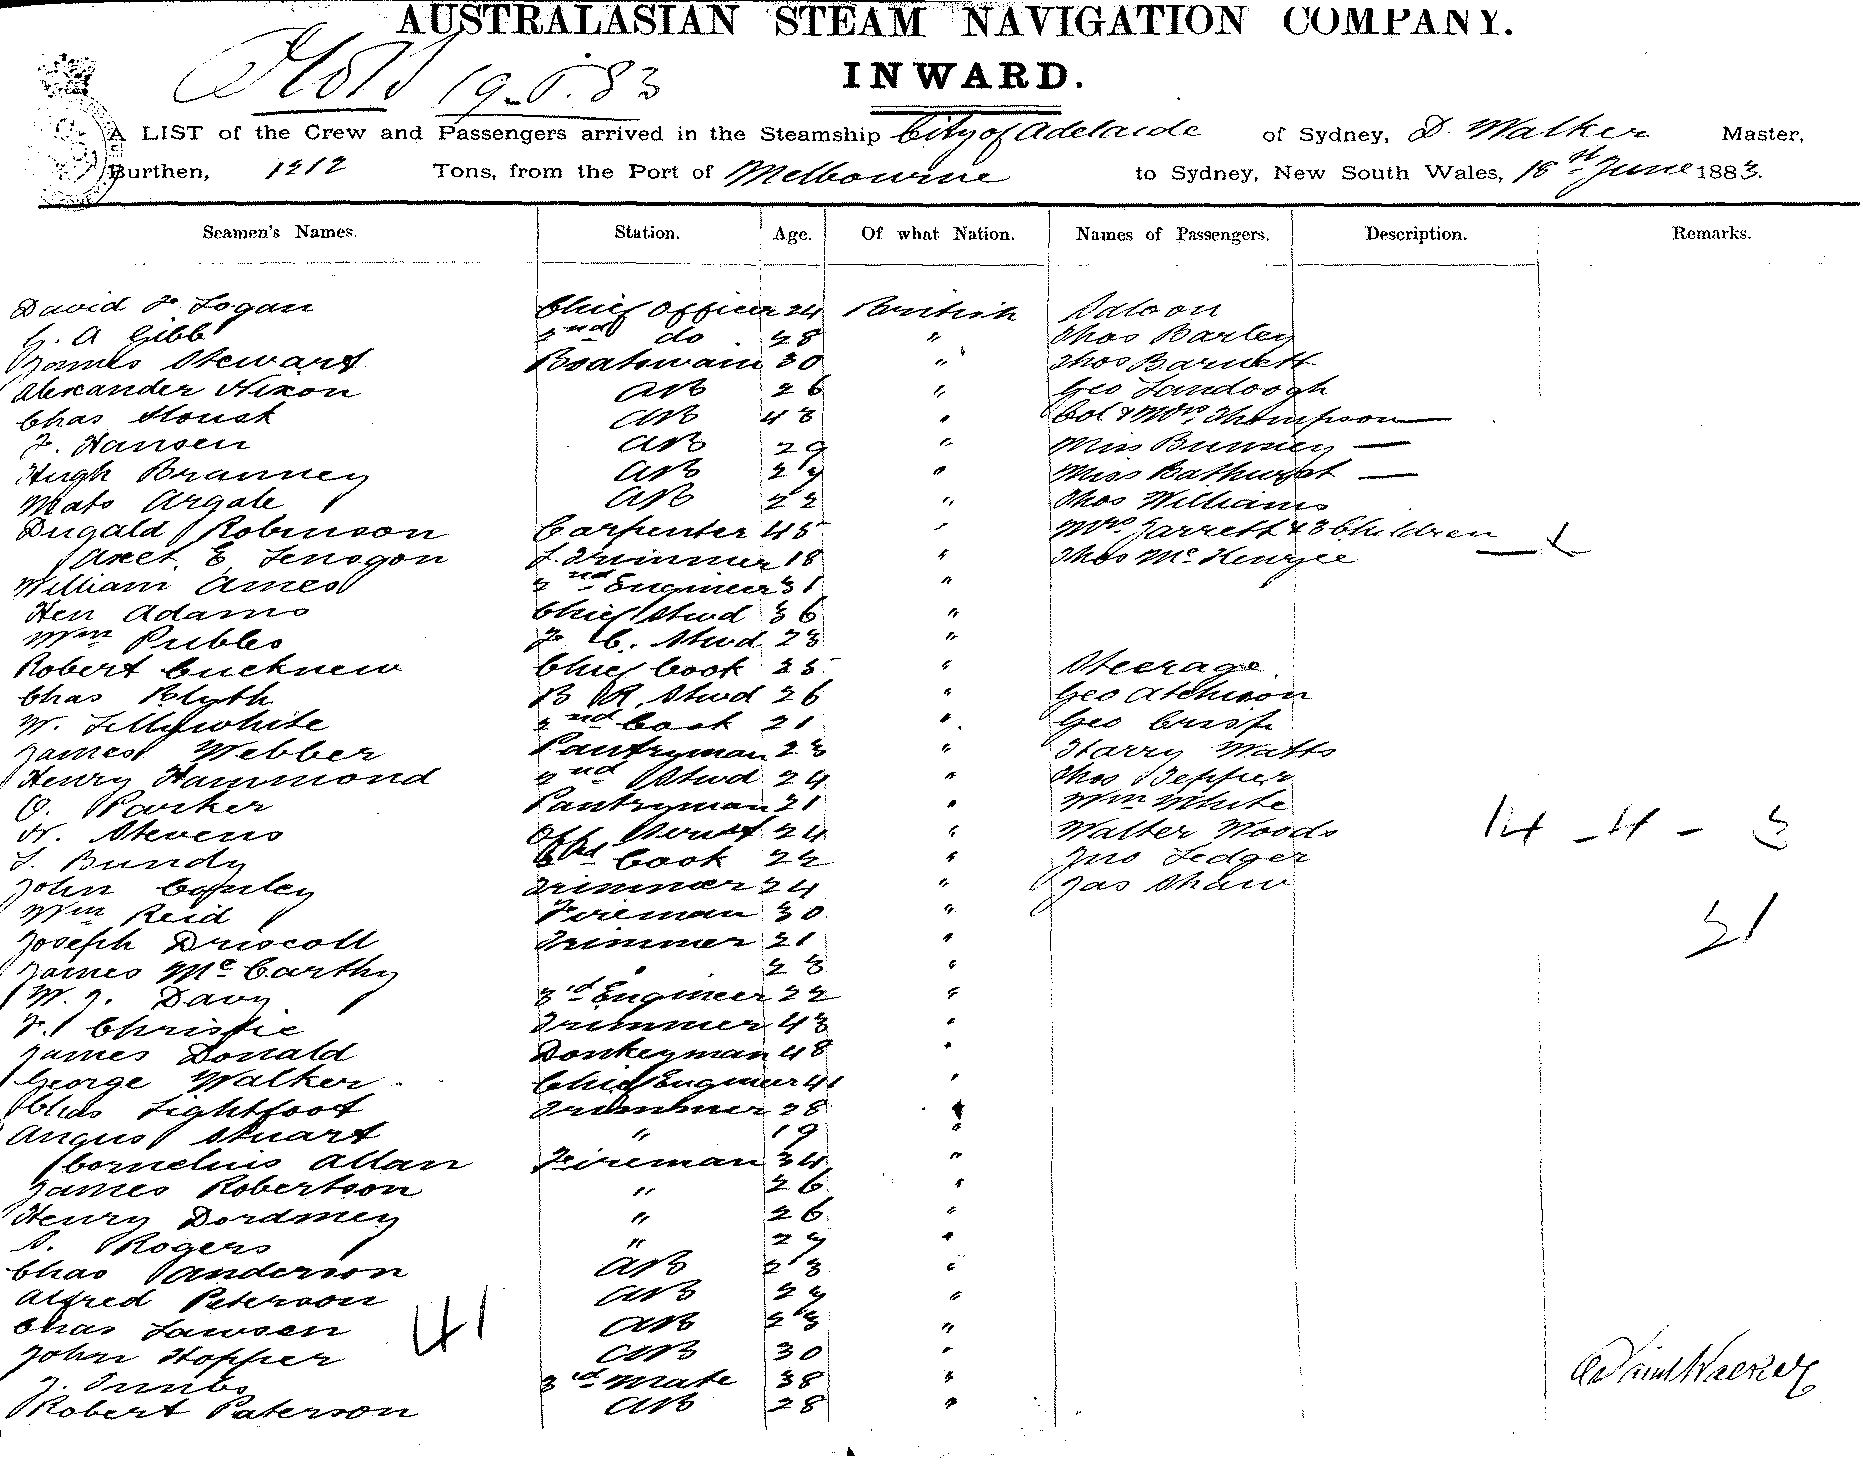 AUSTRALASIAN STEAM NAVIGATION COMPANY.
INWARD.
19. 83
A LIST of the Crew and Passengers arrived in the Steamship City of Adelaide of Sydney, D. Walker Master,
Burthen, 1212 Tons, from the Port of Melbourne to Sydney, New South Wales, 18th June 1883.
Seamen's Names. Station. Age. Of what Nation. Names of Passengers. Description. Remarks.
David Logan Chief Officer 24 British Saloon
G. A Gibb 2nd do 28 " Thos Barley
James Stewart Boatswain 30 " Thos Barnett
Alexander Nixon AB 26 " Geo
Chas AB 43 " Col & Mrs Thompson
F. Hansen AB 29 " Miss
Hugh Branney AB 27 " Miss Bathurst
Mats Argale AB 22 " Thos Williams
Dugald Robinson Carpenter 45 " Mrs Jarrett & 3 Children
E Trimmer 18 " Thos
William Ames 2nd Engineer 31 "
Hen Adams Chief Stwd 36 "
Wm Publes F. C. Stwd 23 "
Robert Chief Cook 25 " Steerage
Chas Blyth B R Stwd 26 " Geo Atchison
W. Lillywhite 2nd Cook 21 " Geo Crisp
James Webber Pantryman 23 " Harry Watts
Henry Hammond 2nd Stwd 24 " Thos Tepper
O. Parker Pantryman 21 " Wm White
Stevens 24 " Walter Woods 14 - 4 - 3
Bundy Cook 22 " Jno Ledger
John Trimmer 24 " Jas Shaw
Wm Reid Fireman 30 " 21
Joseph Driscoll Trimmer 21 "
James McCarthy " 23 "
W. J. Davy 3rd Engineer 22 "
F. Christie Trimmer 43 "
James Donald Donkeyman 48 "
George Walker Chief Engineer 41 "
Chas Lightfoot Trimmer 28 "
Angus Stuart " 19 "
Cornelius Allan Fireman 34 "
James Robertson " 26 "
Henry Dordmey " 26 "
Rogers " 27 "
Chas Sanderson AB 23 "
Alfred Peterson AB 27 "
Chas Lawsen AB 23 "
John Hopper AB 30 "
41
3rd Mate 38 "
Robert Paterson AB 28 "